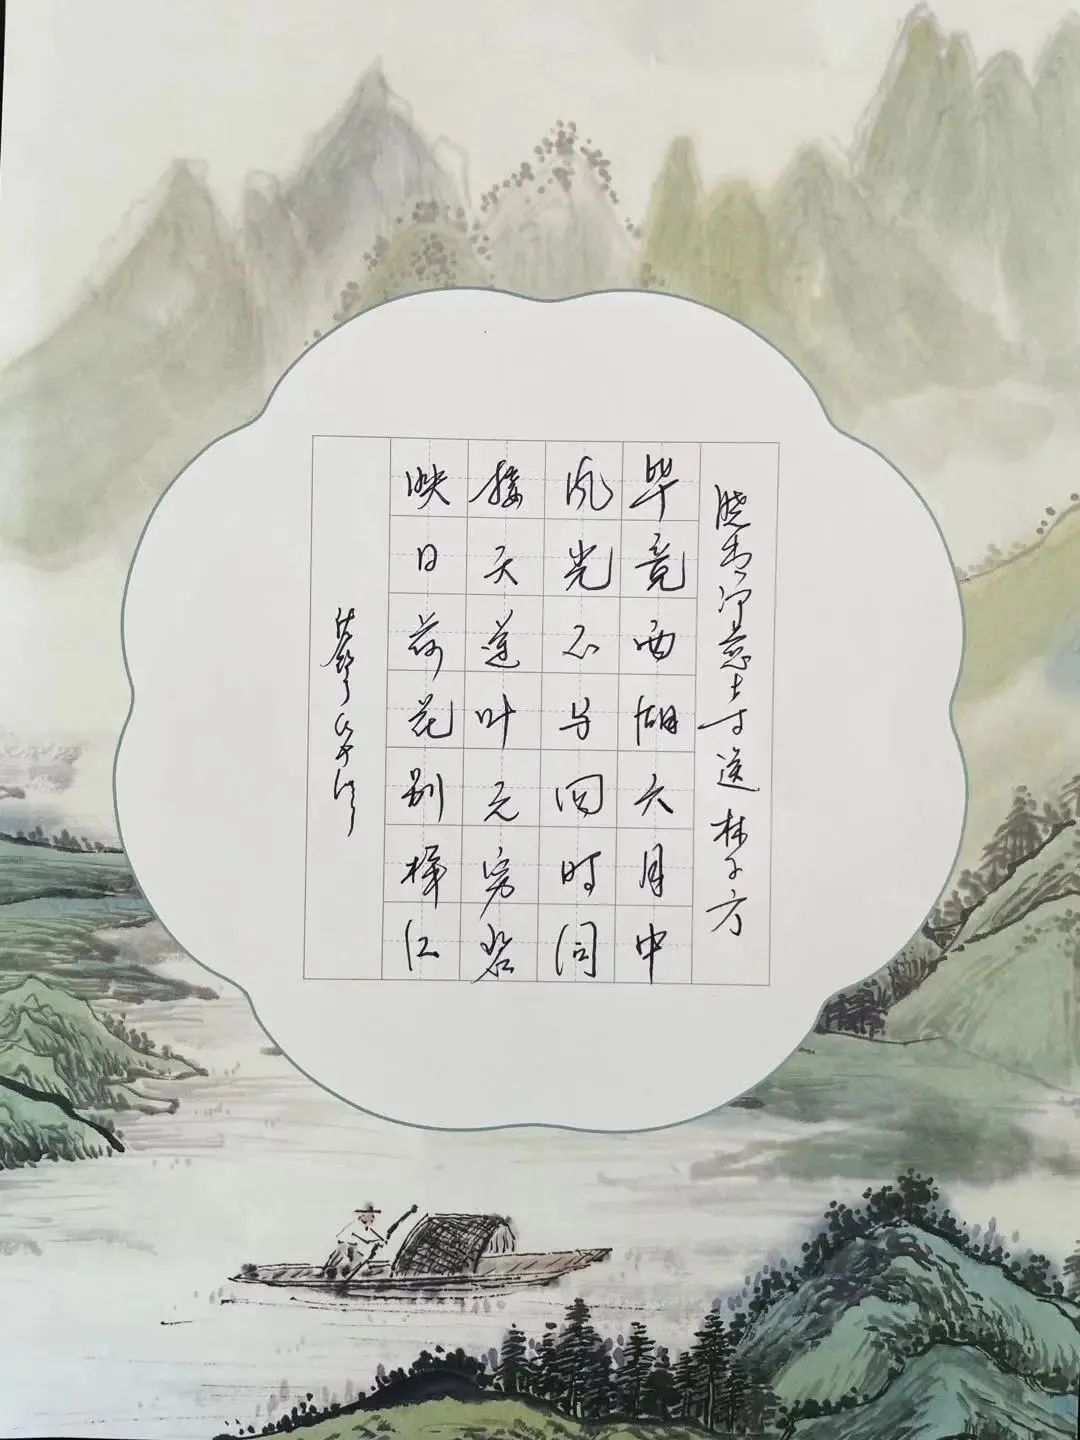 晓出净慈寺送林子方
毕竟西湖六月中
风光不与四时同
接天莲叶无穷碧
映日荷花别样红